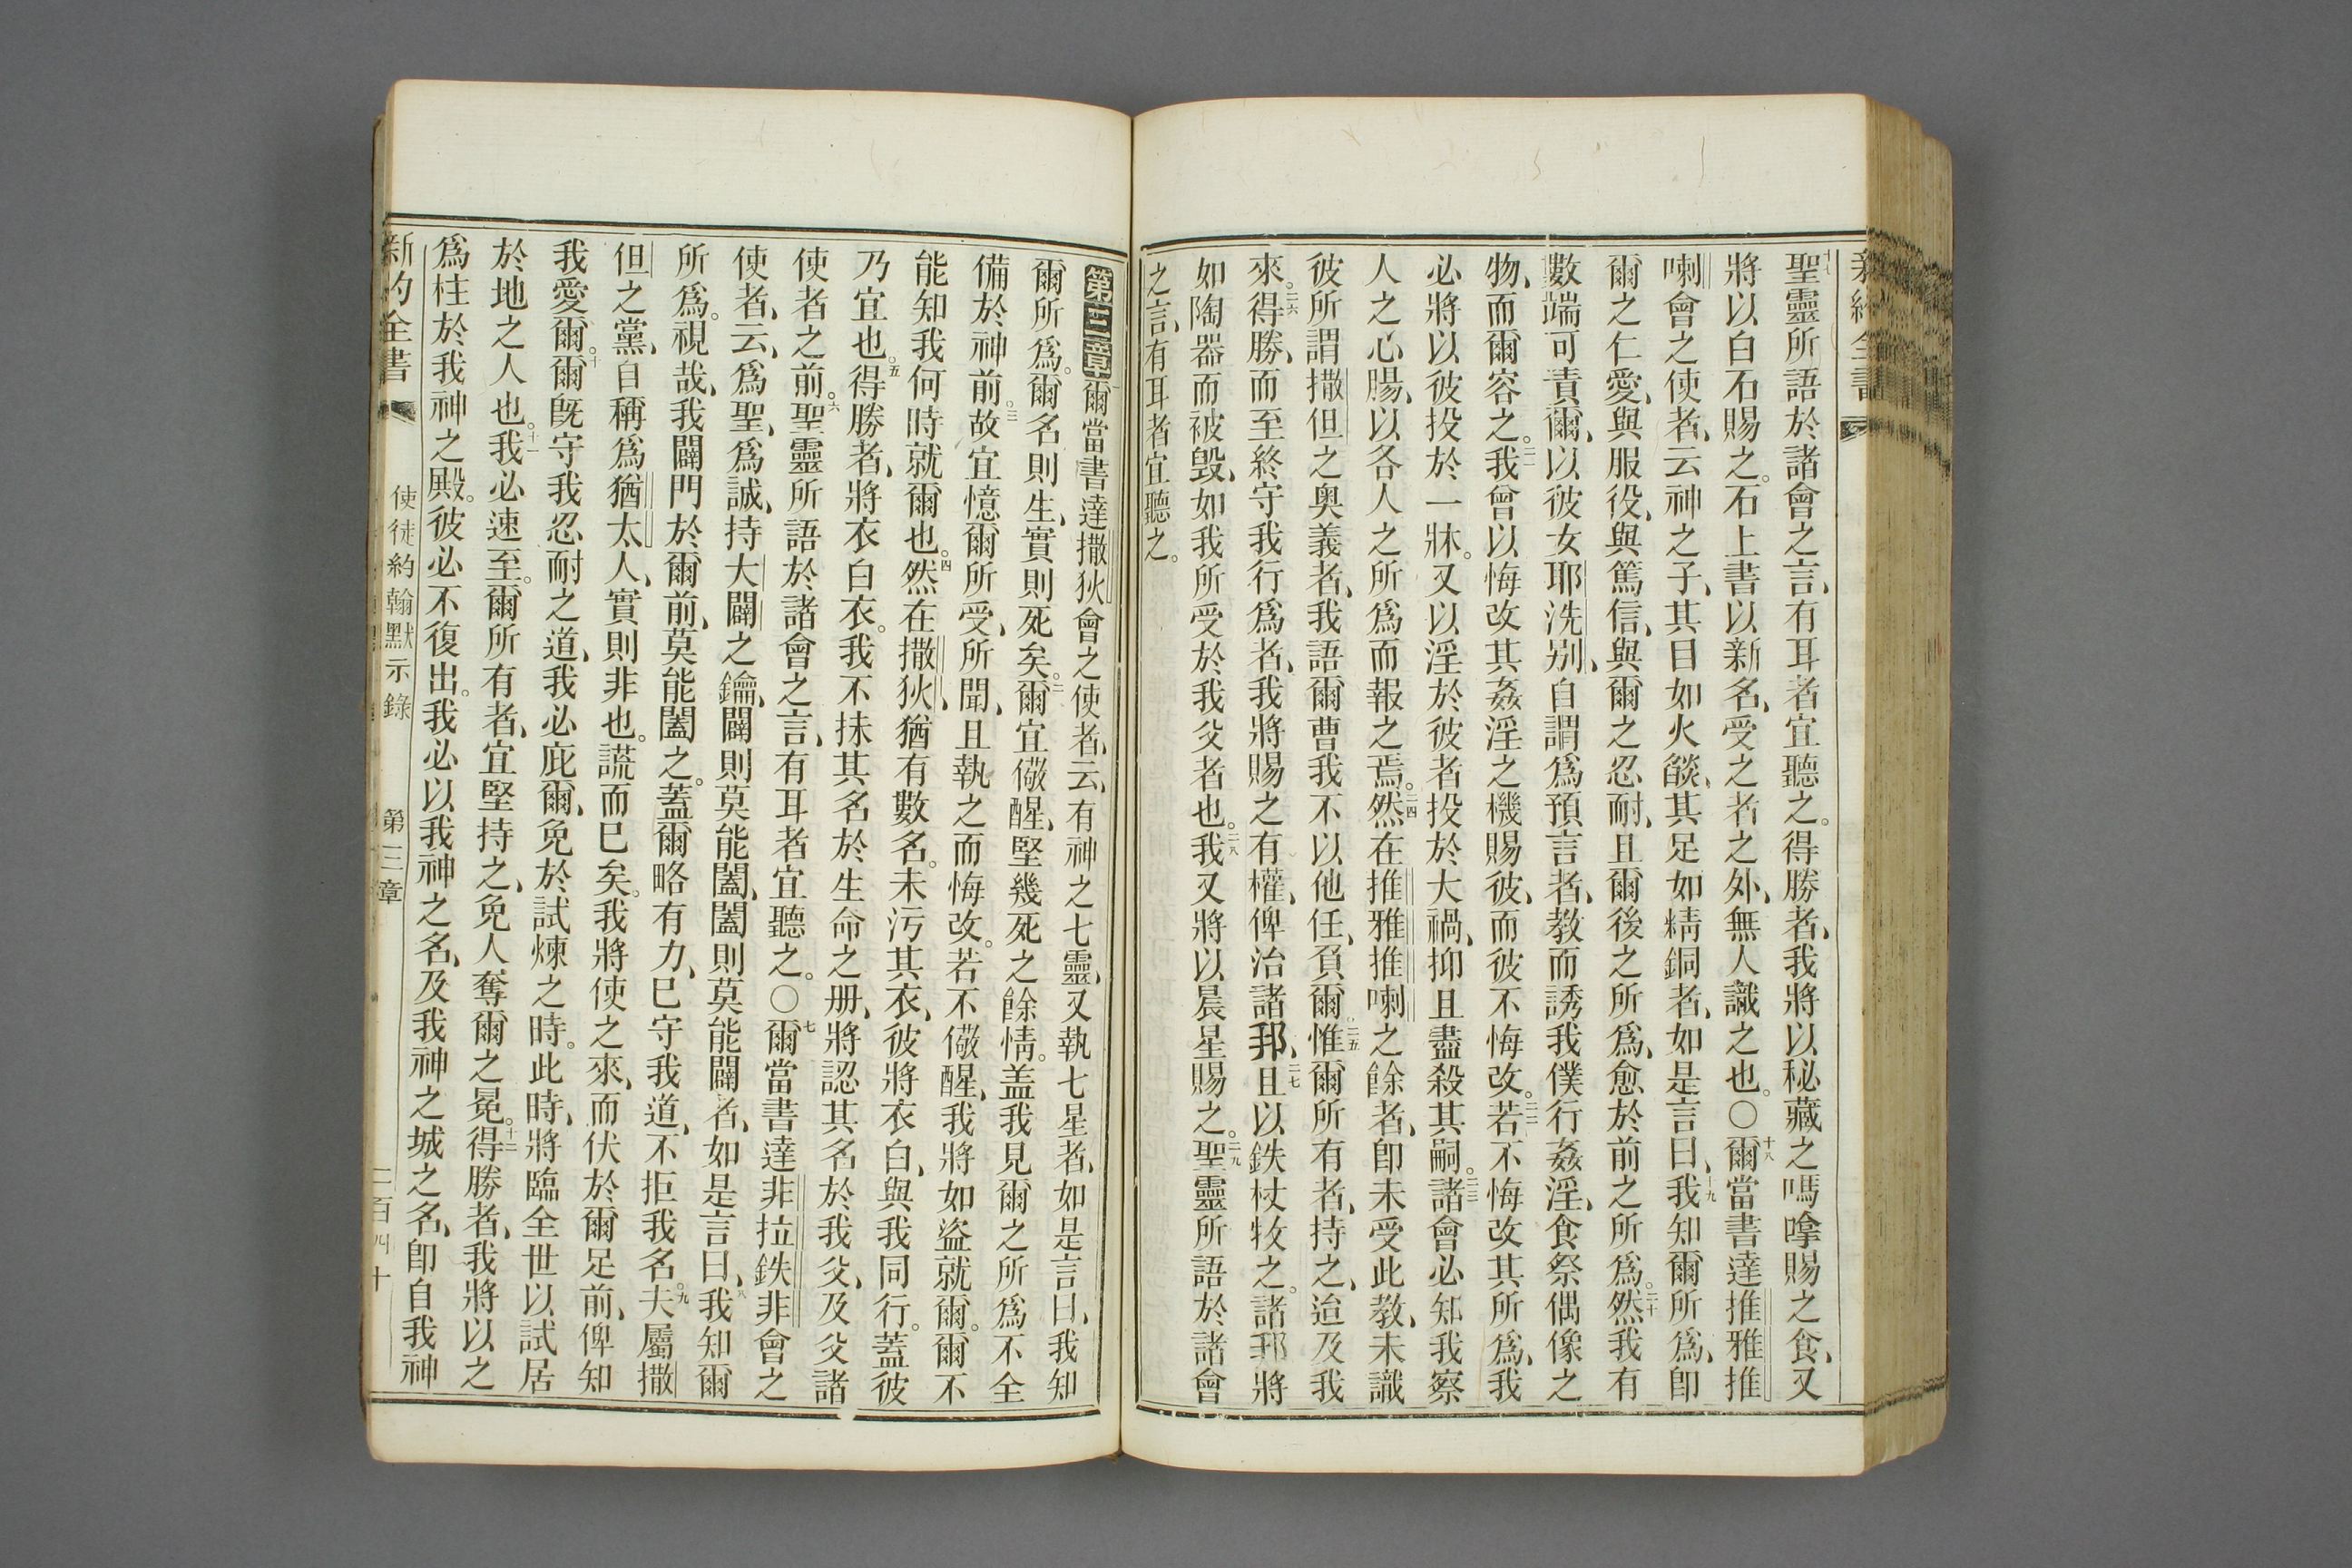 聖靈所語於諸會之言、有耳者宜聽之。得勝者、我將以秘藏之嗎嗱賜之食、又
將以白石賜之。石上書以新名、受之者之外、無人識之也。○十八爾當書達推雅推
喇會之使者、云神之子、其目如火燄、其足如精銅者、如是言曰、十九我知爾所爲、卽
爾之仁愛、與服役、與篤信、與爾之忍耐、且爾後之所爲、愈於前之所爲。二十然我有
數端可責爾、以彼女耶洗别、自謂爲預言者、教而誘我僕行姦淫、食祭偶像之
物、而爾容之。二一我曾以悔改其姦淫之機賜彼、而彼不悔改。二二若不悔改其所爲、我
必將以彼投於一牀。又以淫於彼者投於大禍、抑且盡殺其嗣。二三諸會必知我察
人之心腸、以各人之所爲而報之焉。二四然在推雅推喇之餘者、卽未受此教、未識
彼所謂撒但之奥義者、我語爾曹我不以他任、負爾二五惟爾所有者、持之、迨及我
來。二六得勝、而至終守我行爲者、我將賜之有權、俾治諸邦、二七且以鉄杖牧之。諸邦將
如陶器而被毁、如我所受於我父者也。二八我又將以晨星賜之。二九聖靈所語於諸會
之言、有耳者宜聽之。
第三章爾當書達撒狄會之使者、云、有神之七靈、又執七星者、如是言曰、我知
爾所爲。爾名則生、實則死矣。二爾宜儆醒、堅幾死之餘情。盖我見爾之所爲不全
備於神前。三故宜憶爾所受、所聞、且執之而悔改。若不儆醒、我將如盜就爾。爾不
能知我何時就爾也。四然在撒狄、猶有數名。未污其衣、彼將衣白、與我同行。蓋彼
乃宜也。五得勝者、將衣白衣。我不抹其名於生命之册、將認其名於我父、及父諸
使者之前。六聖靈所語於諸會之言、有耳者宜聽之。○七爾當書達非拉鉄非會之
使者、云、爲聖、爲誠、持大闢之鑰、闢則莫能闔、闔則莫能闢者、如是言曰、八我知爾
所爲。視哉、我闢門於爾前、莫能闔之。蓋爾略有力、已守我道、不拒我名。九夫屬撒
但之黨、自稱爲猶太人、實則非也。謊而已矣。我將使之來、而伏於爾足前、俾知
我愛爾。十爾旣守我忍耐之道、我必庇爾、免於試煉之時。此時、將臨全世以試居
於地之人也。十一我必速至。爾所有者、宜堅持之、免人奪爾之冕。十二得勝者、我將以之
爲柱於我神之殿。彼必不復出。我必以我神之名、及我神之城之名、卽自我神
新約全書 使徒約翰默示錄 第三章 二百四十